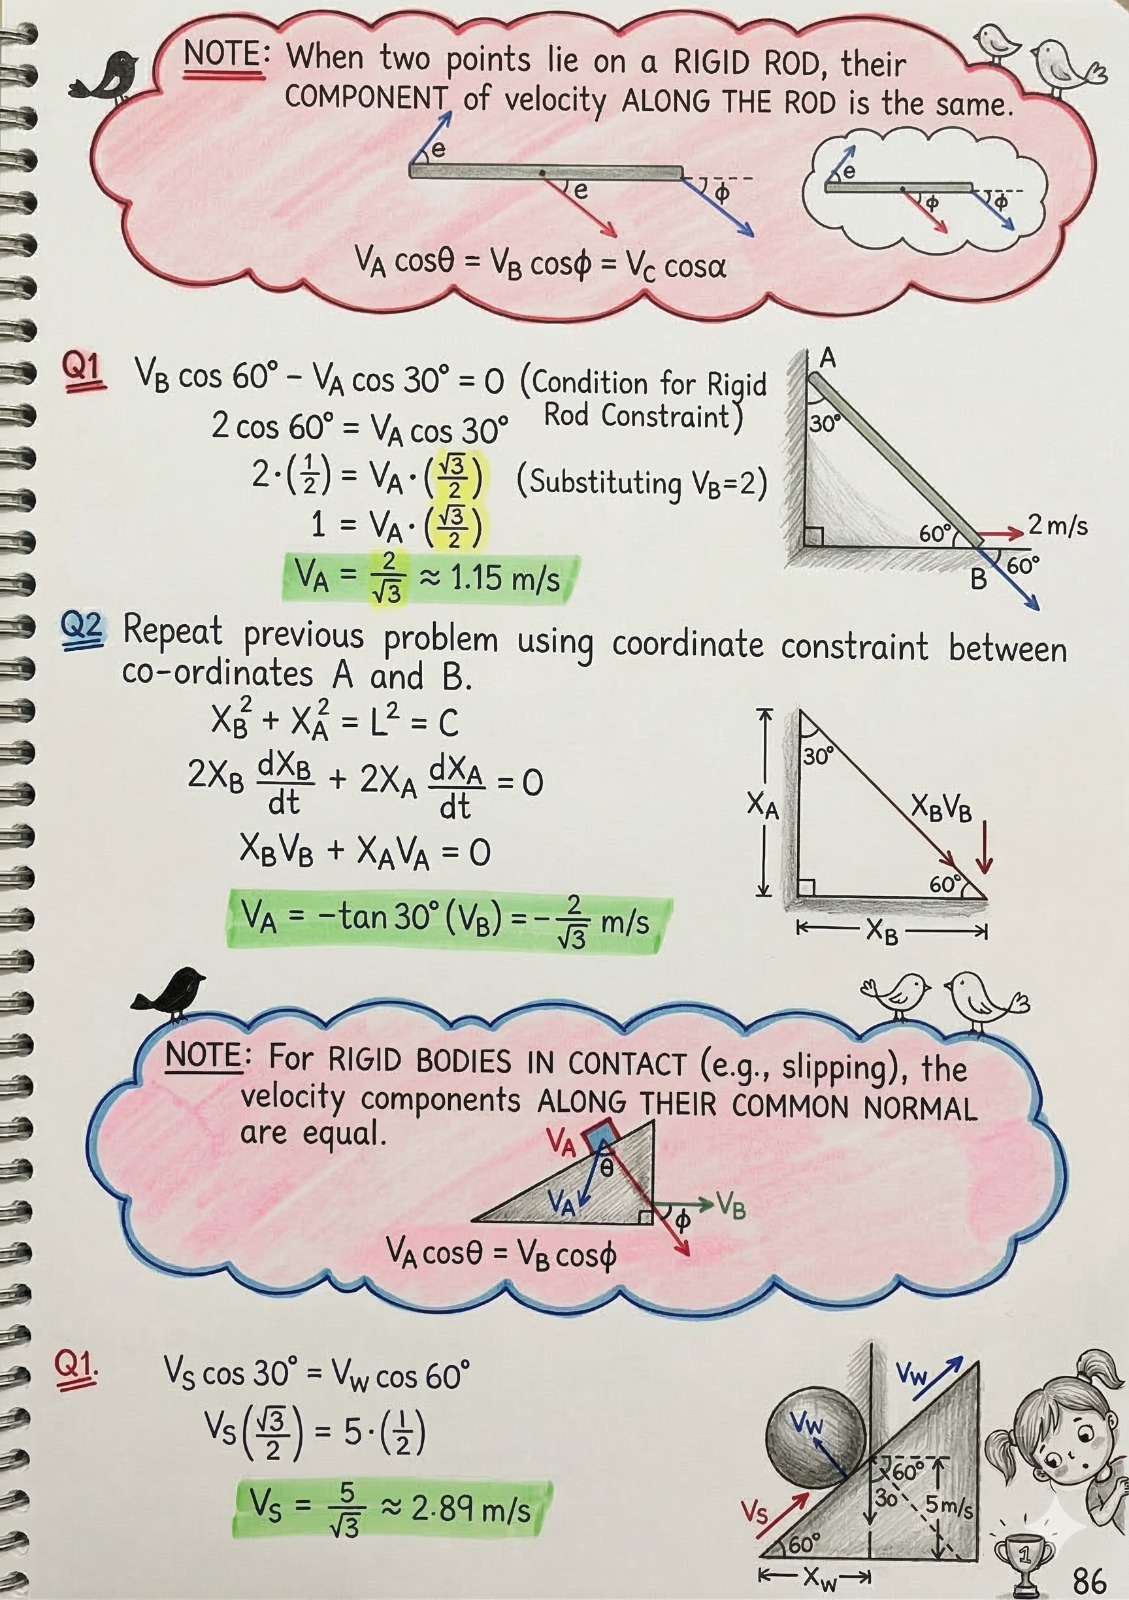 NOTE: When two points lie on a RIGID ROD, their
COMPONENT of velocity ALONG THE ROD is the same.
e
e
ϕ
e
ϕ
ϕ
V_A cosθ = V_B cosϕ = V_C cosα
Q1 V_B cos 60° - V_A cos 30° = 0 (Condition for Rigid
Rod Constraint)
2 cos 60° = V_A cos 30°
2·(1/2) = V_A·(√3/2) (Substituting V_B=2)
1 = V_A·(√3/2)
V_A = 2/√3 ≈ 1.15 m/s
A
30°
60°
2 m/s
B
60°
Q2 Repeat previous problem using coordinate constraint between
co-ordinates A and B.
X_B² + X_A² = L² = C
2X_B dX_B/dt + 2X_A dX_A/dt = 0
X_B V_B + X_A V_A = 0
V_A = -tan 30° (V_B) = -2/√3 m/s
30°
X_A
X_B V_B
60°
X_B
NOTE: For RIGID BODIES IN CONTACT (e.g., slipping), the
velocity components ALONG THEIR COMMON NORMAL
are equal.
V_A
θ
V_A
V_B
ϕ
V_A cosθ = V_B cosϕ
Q1. V_S cos 30° = V_W cos 60°
V_S(√3/2) = 5·(1/2)
V_S = 5/√3 ≈ 2.89 m/s
V_W
V_W
60°
30
5 m/s
V_S
60°
X_W
1
86